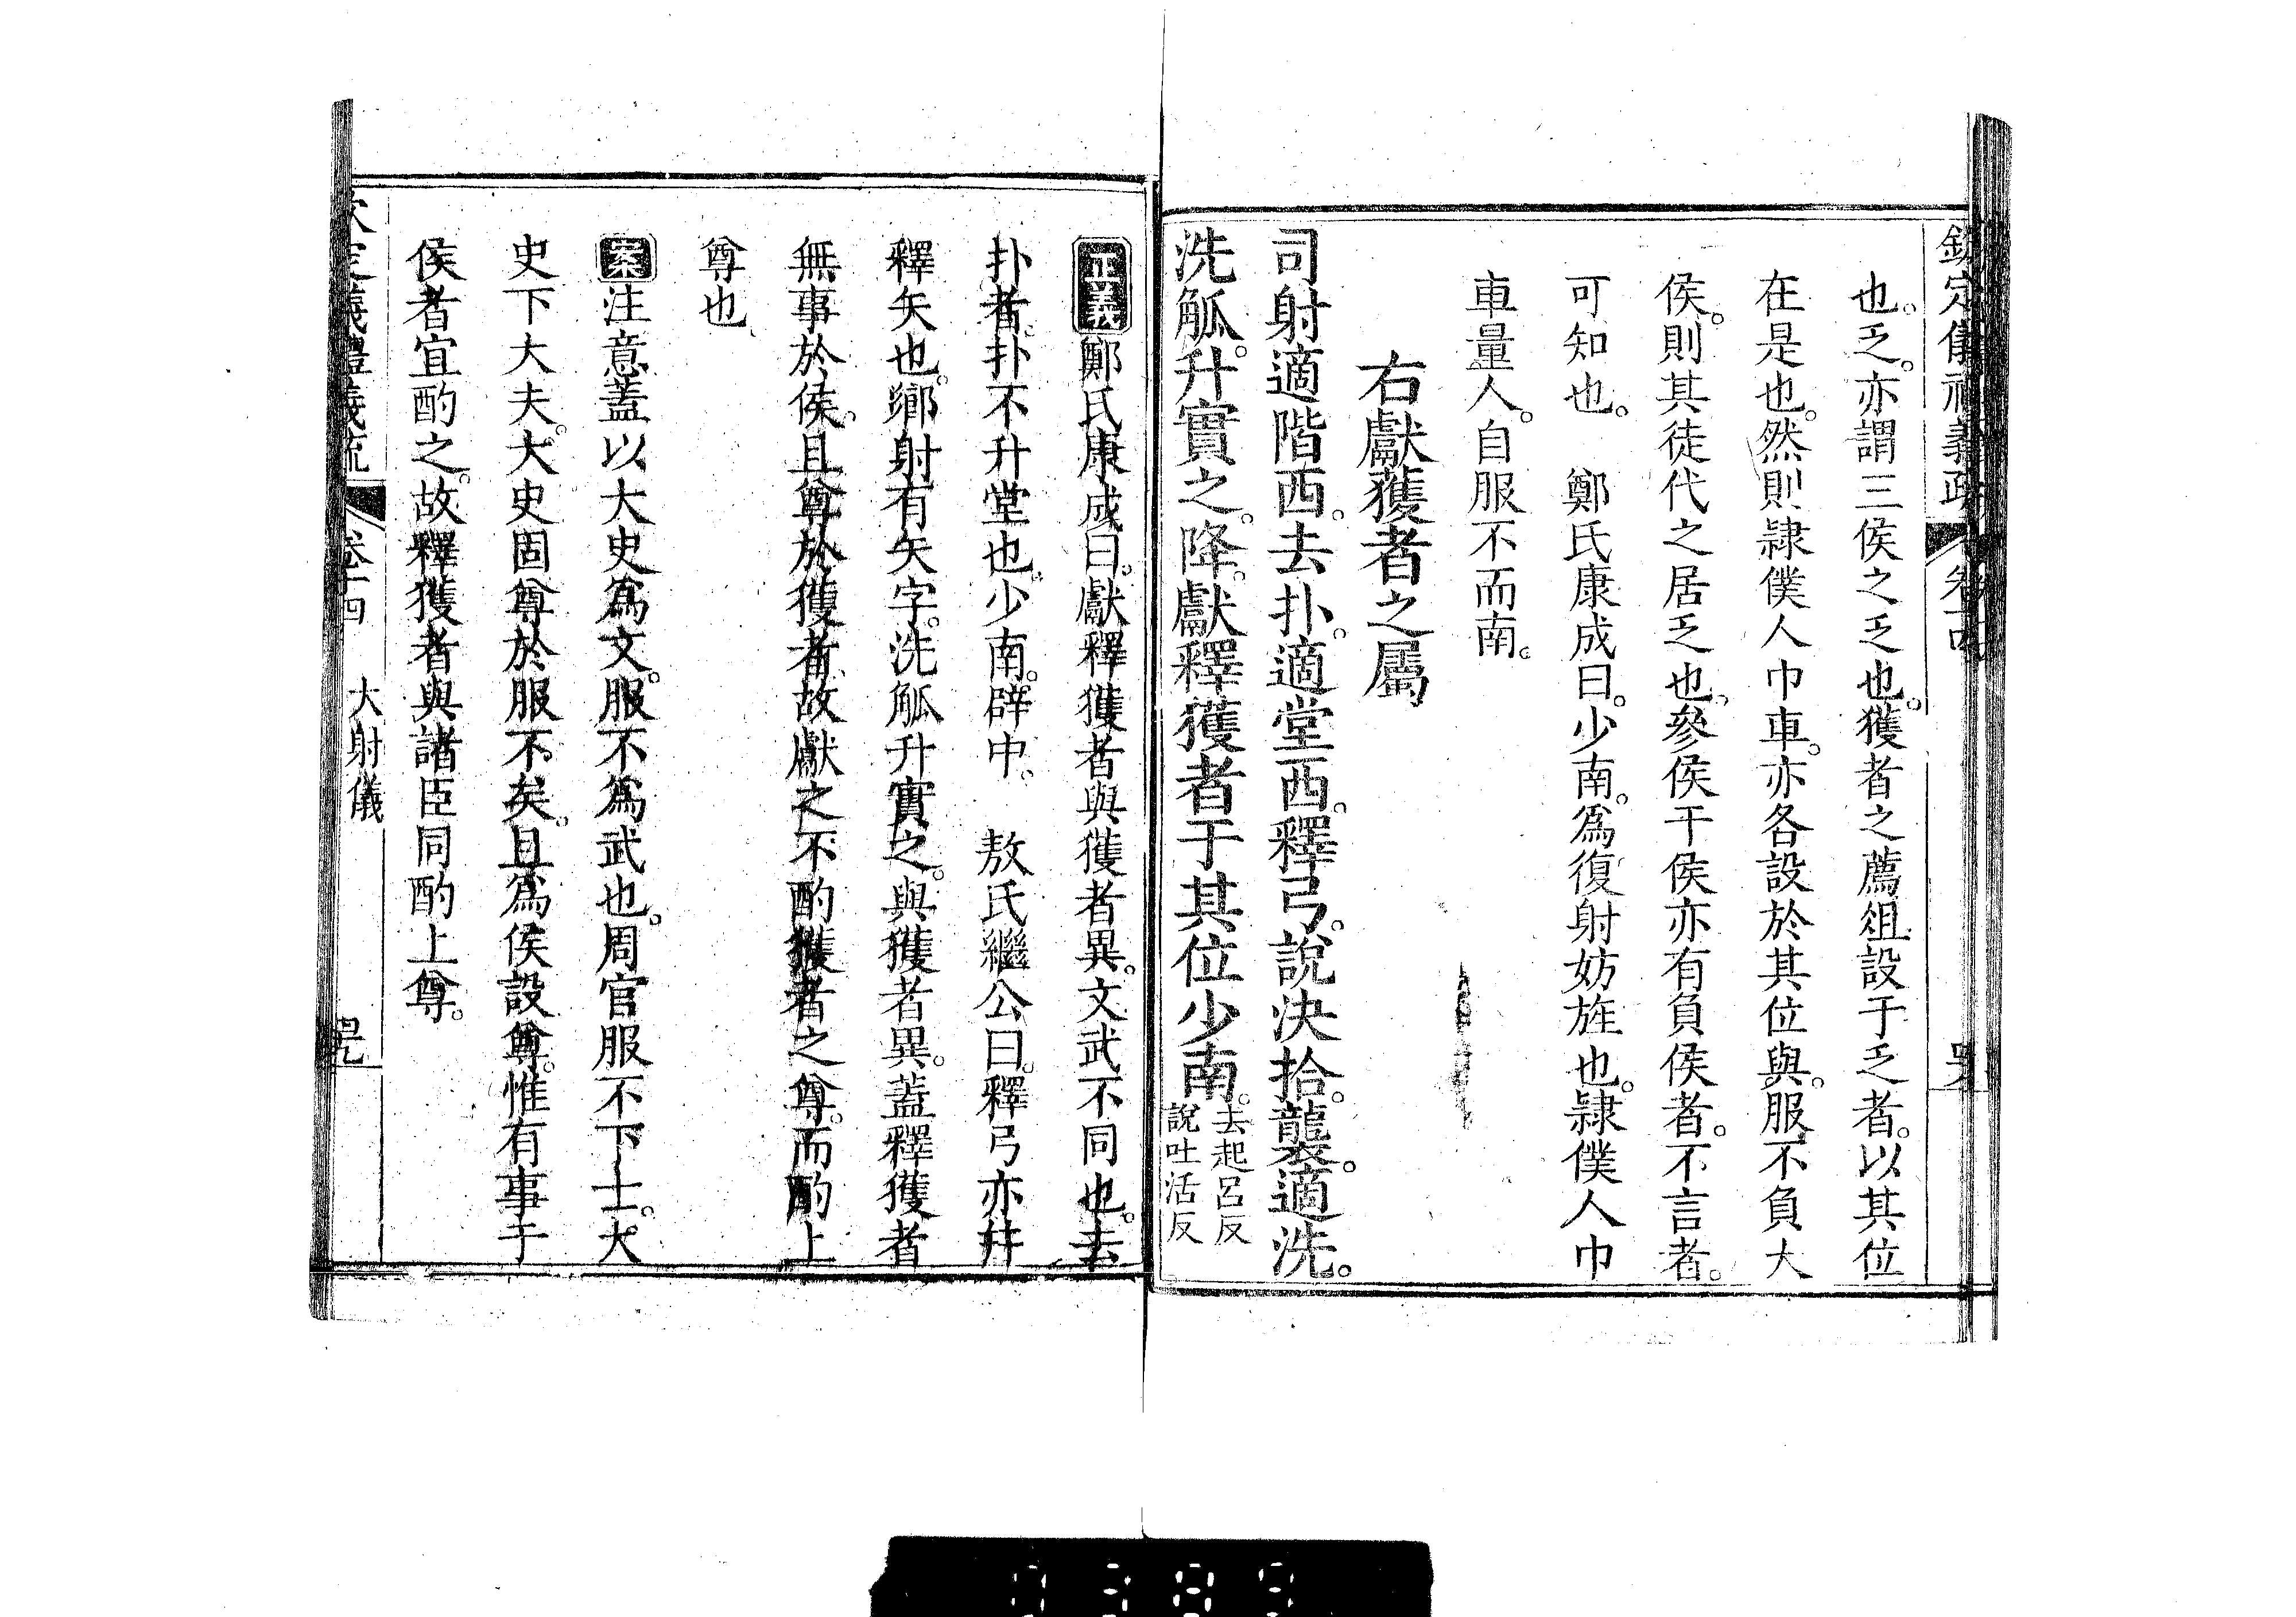 欽定儀禮義疏 卷十四
也。乏。亦謂三侯之乏也。獲者之薦俎設于乏者。以其位
在是也。然則隷僕人巾車。亦各設於其位與。服不負大
侯。則其徒代之居乏也。參侯干侯亦有負侯者。不言者。
可知也。　鄭氏康成曰。少南。爲復射妨旌也。隷僕人巾
車量人。自服不而南。
右獻獲者之屬
司射適階西。去扑。適堂西。釋弓。說決拾。襲。適洗。
洗觚。升實之。降。獻釋獲者于其位少南。
去起呂反
說吐活反
正義鄭氏康成曰。獻釋獲者與獲者異。文武不同也。去
扑者。扑不升堂也。少南。辟中。　敖氏繼公曰。釋弓亦幷
釋矢也。鄉射有矢字。洗觚升實之。與獲者異。蓋釋獲者
無事於侯。且尊於獲者。故獻之不酌獲者之尊。而酌上
尊也。
案注意蓋以大史爲文。服不爲武也。周官服不下士。大
史下大夫。大史固尊於服不矣。且爲侯設尊。惟有事于
侯者宜酌之。故釋獲者與諸臣同酌上尊。
欽定儀禮義疏 卷十四 大射儀